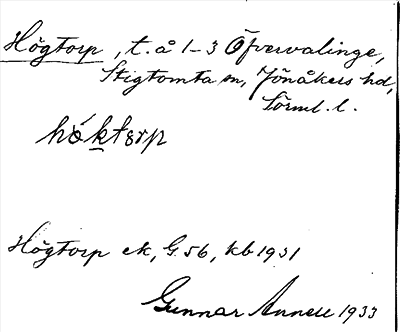 Högtorp, t. å 1-3 Öfvervalinge,
Stigtomta sn, Jönåkers hd,
Sörml. l.
hö́ktorp
Högtorp ek, G. 56, kb 1931
Gunnar Annell 1933